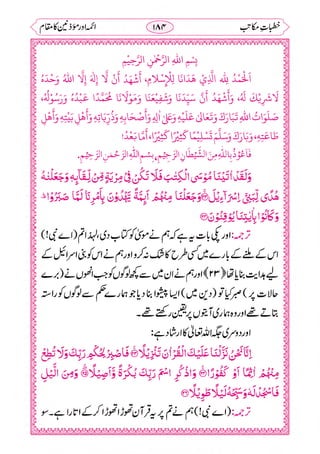 خطبات مکاتب ۱۸۴ ائمہ اور مؤذنین کا مقام
بِسْمِ اللهِ الرَّحْمٰنِ الرَّحِيْمِ
اَلْحَمْدُ لِلّٰهِ الَّذِيْ هَدَانَا لِلْاِسْلَامِ، اَشْهَدُ اَنْ لَّا اِلٰهَ اِلَّا اللهُ وَحْدَهٗ
لَا شَرِيْكَ لَهٗ، وَاَشْهَدُ اَنَّ سَيِّدَنَا وَشَفِيْعَنَا وَمَوْلَانَا مُحَمَّدًا عَبْدُهٗ وَرَسُوْلُهٗ،
صَلَوَاتُ اللهِ تَبَارَكَ وَتَعَالٰى عَلَيْهِ وَعَلٰى اٰلِهٖ وَاَصْحَابِهٖ وَذُرِّيَّاتِهٖ وَاَهْلِ بَيْتِهٖ وَاَهْلِ
طَاعَتِهٖ، وَبَارَكَ وَسَلَّمَ تَسْلِيْمًا كَثِيْرًا كَثِيْرًا، اَمَّا بَعْدُ!
فَاَعُوْذُ بِاللهِ مِنَ الشَّيْطَانِ الرَّجِيْمِ، بِسْمِ اللهِ الرَّحْمٰنِ الرَّحِيْمِ.
وَلَقَدْ اٰتَيْنَا مُوْسَى الْكِتٰبَ فَلَا تَكُنْ فِيْ مِرْيَةٍ مِّنْ لِّقَآىِٕهٖ وَجَعَلْنٰهُ
هُدًى لِّبَنِيْۤ اِسْرَآءِيْلَ ۟ وَجَعَلْنَا مِنْهُمْ اَىِٕمَّةً يَّهْدُوْنَ بِاَمْرِنَا لَمَّا صَبَرُوْا ۫
وَكَانُوْا بِاٰيٰتِنَا يُوْقِنُوْنَ ۟
ترجمہ: اور پکی بات یہ ہے کہ ہم نے موسیٰ کو کتاب دی، لہٰذا تم (اے نبی!)
اس کے ملنے کے بارے میں کسی طرح کا شک نہ کرو اور ہم نے اس کو بنی اسرائیل کے
لیے ہدایت بنایا تھا (۲۳) اور ہم نے ان میں سے کچھ لوگوں کو جب انھوں نے (برے
حالات پر) صبر کیا تو (دین میں) ایسا پیشوا بنا دیا جو ہمارے حکم سے لوگوں کو راستہ
بتاتے تھے اور وہ ہماری آیتوں پر یقین رکھتے تھے۔
اور دوسری جگہ اللہ تعالیٰ کا ارشاد ہے:
اِنَّا نَحْنُ نَزَّلْنَا عَلَيْكَ الْقُرْاٰنَ تَنْزِيْلًا ۟ فَاصْبِرْ لِحُكْمِ رَبِّكَ وَلَا تُطِعْ
مِنْهُمْ اٰثِمًا اَوْ كَفُوْرًا ۟ وَاذْكُرِ اسْمَ رَبِّكَ بُكْرَةً وَّاَصِيْلًا ۟ وَمِنَ الَّيْلِ
فَاسْجُدْ لَهٗ وَسَبِّحْهُ لَيْلًا طَوِيْلًا ۟
ترجمہ: (اے نبی!) ہم نے تم پر یہ قرآن تھوڑا تھوڑا کر کے اتارا ہے۔ سو